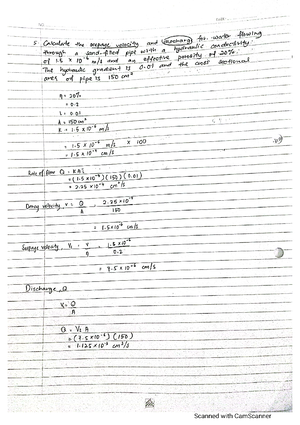 5. Calculate the seepage velocity and discharge for water flowing
through a sand-filled pipe with a hydraulic conductivity
of 1.5 × 10⁻⁴ m/s and an effective porosity of 20%.
The hydraulic gradient is 0.01 and the cross sectional
area of pipe is 150 cm²
η = 20%
= 0.2
i = 0.01
A = 150 cm²
K = 1.5 × 10⁻⁴ m/s
= 1.5 × 10⁻⁴ m/s × 100
= 1.5 × 10⁻² cm/s
Rate of flow Q = KAi
= (1.5 × 10⁻²)(150)(0.01)
= 2.25 × 10⁻² cm³/s
Darcy velocity, v = Q/A = 2.25 × 10⁻² / 150
= 1.5 × 10⁻⁴ cm/s
Seepage velocity, Vs = v/η = 1.5 × 10⁻⁴ / 0.2
= 7.5 × 10⁻⁴ cm/s
Discharge, Q
Vs = Q/A
Q = Vs A
= (7.5 × 10⁻⁴)(150)
= 1.125 × 10⁻¹ cm³/s
Scanned with CamScanner